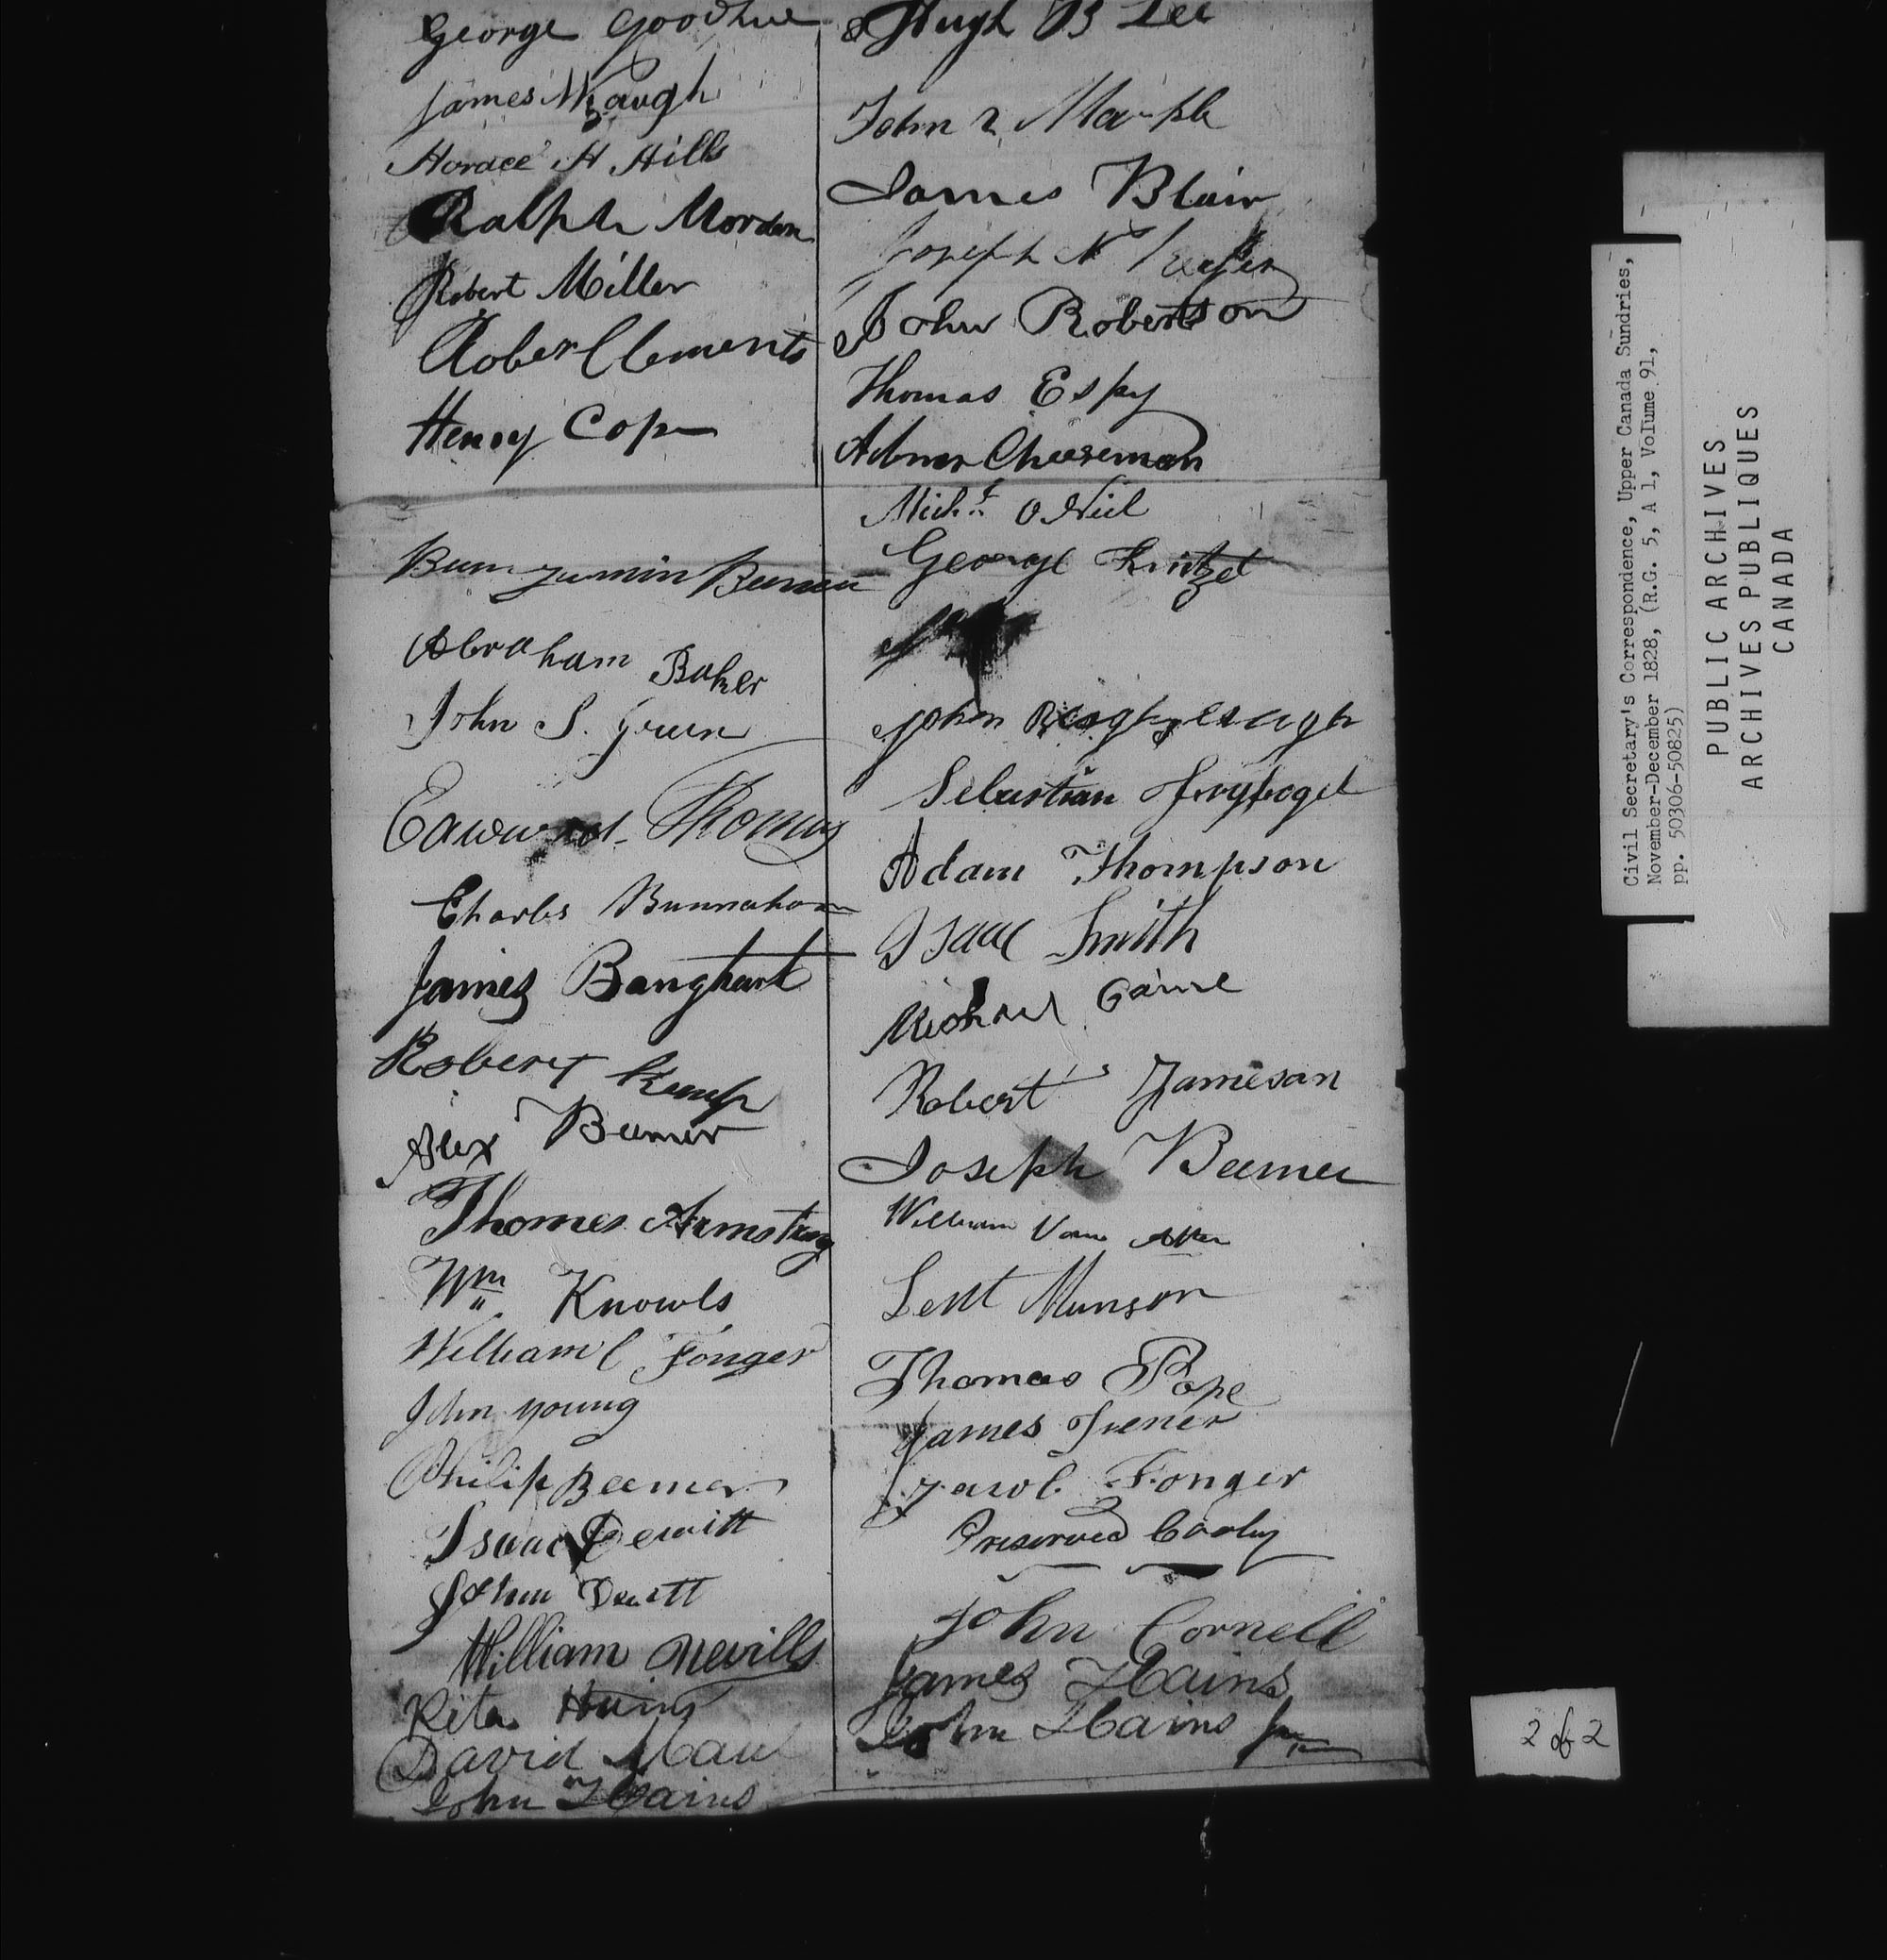 George Goodhue
James Waugh
Horace H Hills
Ralph Morden
Robert Miller
Rober Clements
Henry Cope
Benyumin Beemer
Abraham Baker
John S. Green
Edward Thomas
Charles Bunnahom
James Banghart
Robert Kemp
Alex Beemer
Thomas Armstrong
Wm Knowls
William C Fonger
John young
Philip Beemer
Isaac Dewitt
John Dewitt
William Nevills
Hains
David
John Hains
Hugh B Lee
John
James Blair
Joseph N
John Robertson
Thomas Espy
Abner Cheeseman
Michl O Niel
George Kintzel
John
Sebastian Fryfogel
Adam Thompson
Isaac Smith
Michael
Robert Jameson
Joseph Beemer
William Van
Munson
Thomas Pope
James
Jacob Fonger
Preserved Cooley
John Cornell
James Hains
John Hains Jun
Civil Secretary's Correspondence, Upper Canada Sundries,
November-December 1828, (R.G. 5, A 1, Volume 91,
pp. 50306-50825)
PUBLIC ARCHIVES
ARCHIVES PUBLIQUES
CANADA
2 of 2